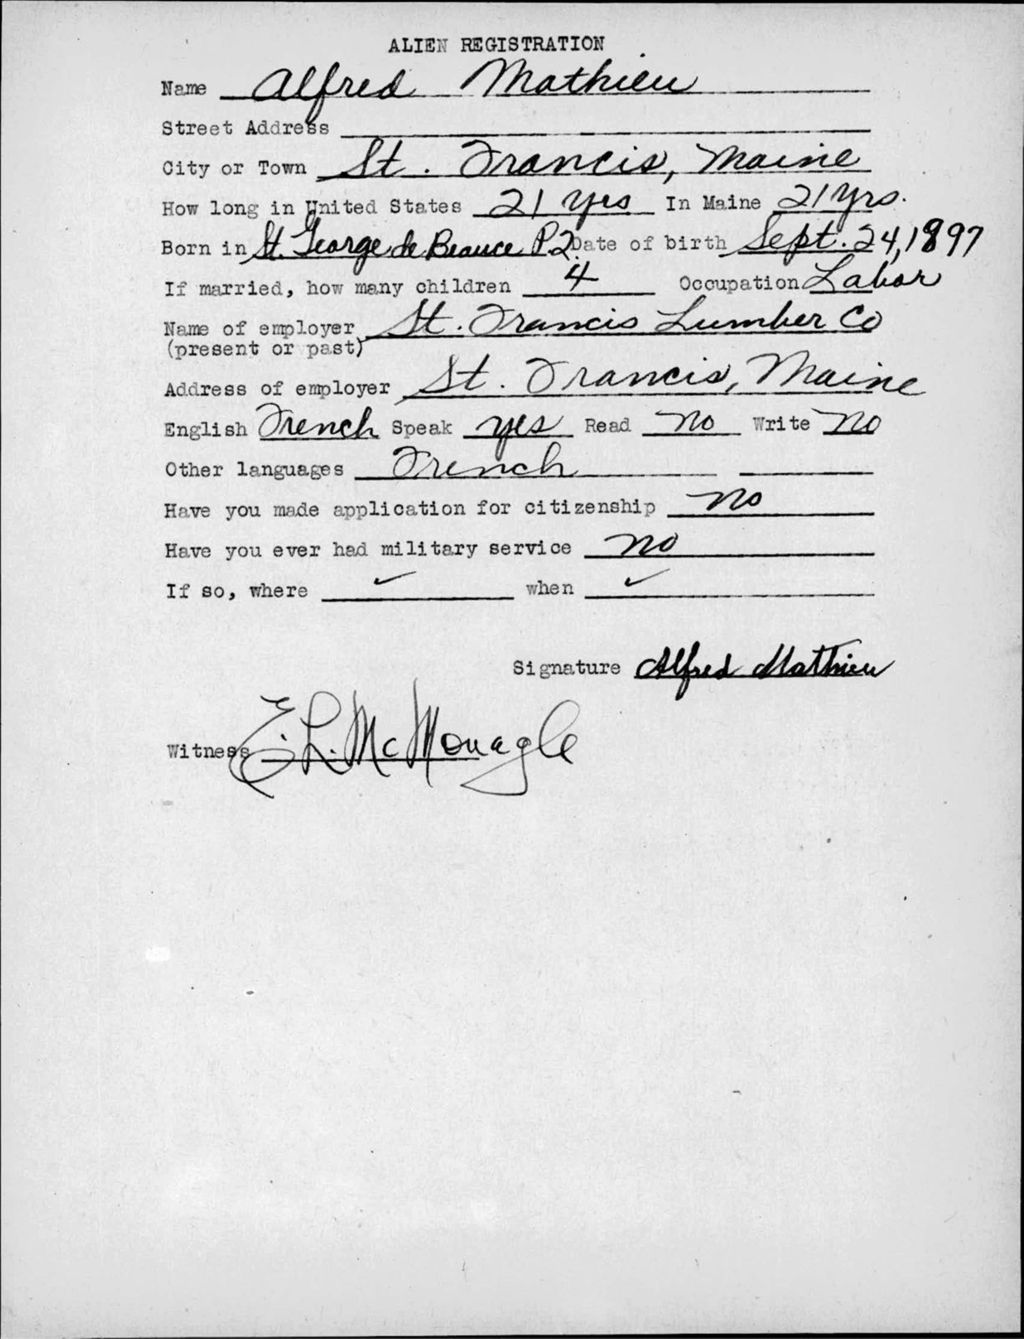 ALIEN REGISTRATION
Name Alfred Mathieu
Street Address
City or Town St. Francis, Maine
How long in United States 21 yes In Maine 21 yrs.
Born in St. George de Beauce P.Q. Date of birth Sept. 24, 1897
If married, how many children 4 Occupation Labor
Name of employer St. Francis Lumber Co
(present or past)
Address of employer St. Francis, Maine
English French Speak yes Read no Write no
Other languages French
Have you made application for citizenship no
Have you ever had military service no
If so, where ✓ when ✓
Signature Alfred Mathieu
Witness E. L. McMonagle